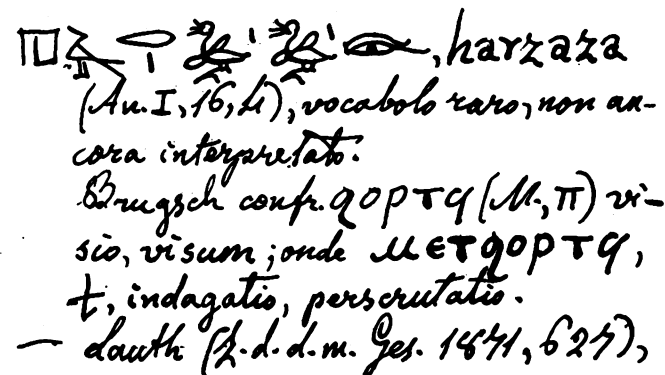 , harzaza
(An. I, 16, 4), vocabolo raro, non an-
cora interpretato.
Brugsch confr. ϩⲟⲣⲧϥ (M, π) vi-
sio, visum; onde ⲙⲉⲧϩⲟⲣⲧϥ,
ϯ, indagatio, perscrutatio.
— Lauth (Z. d. d. m. Ges. 1871, 627),